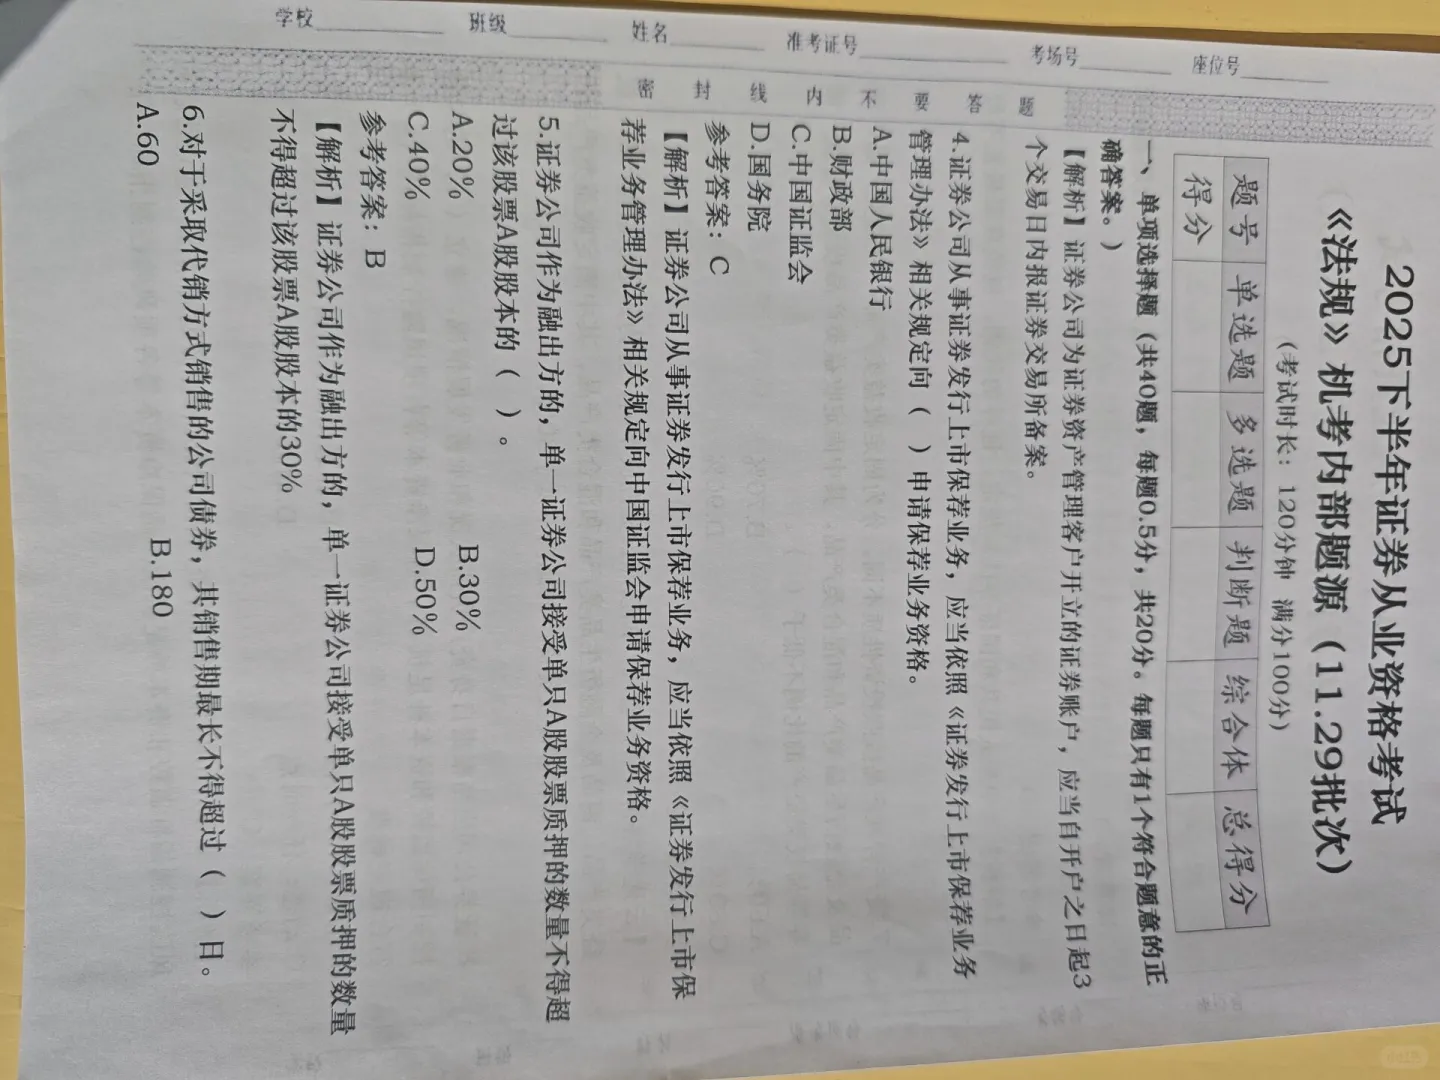 学校 班级 姓名 准考证号 考场号 座位号
密 封 线 内 不 要 答 题
2025下半年证券从业资格考试
《法规》机考内部题源（11.29批次）
（考试时长：120分钟 满分100分）
题号 单选题 多选题 判断题 综合体 总得分
得分
一、单项选择题（共40题，每题0.5分，共20分。每题只有1个符合题意的正
确答案。）
【解析】证券公司为证券资产管理客户开立的证券账户，应当自开户之日起3
个交易日内报证券交易所备案。
4.证券公司从事证券发行上市保荐业务，应当依照《证券发行上市保荐业务
管理办法》相关规定向（ ）申请保荐业务资格。
A.中国人民银行
B.财政部
C.中国证监会
D.国务院
参考答案：C
【解析】证券公司从事证券发行上市保荐业务，应当依照《证券发行上市保
荐业务管理办法》相关规定向中国证监会申请保荐业务资格。
5.证券公司作为融出方的，单一证券公司接受单只A股股票质押的数量不得超
过该股票A股股本的（ ）。
A.20% B.30%
C.40% D.50%
参考答案：B
【解析】证券公司作为融出方的，单一证券公司接受单只A股股票质押的数量
不得超过该股票A股股本的30%
6.对于采取代销方式销售的公司债券，其销售期最长不得超过（ ）日。
A.60 B.180